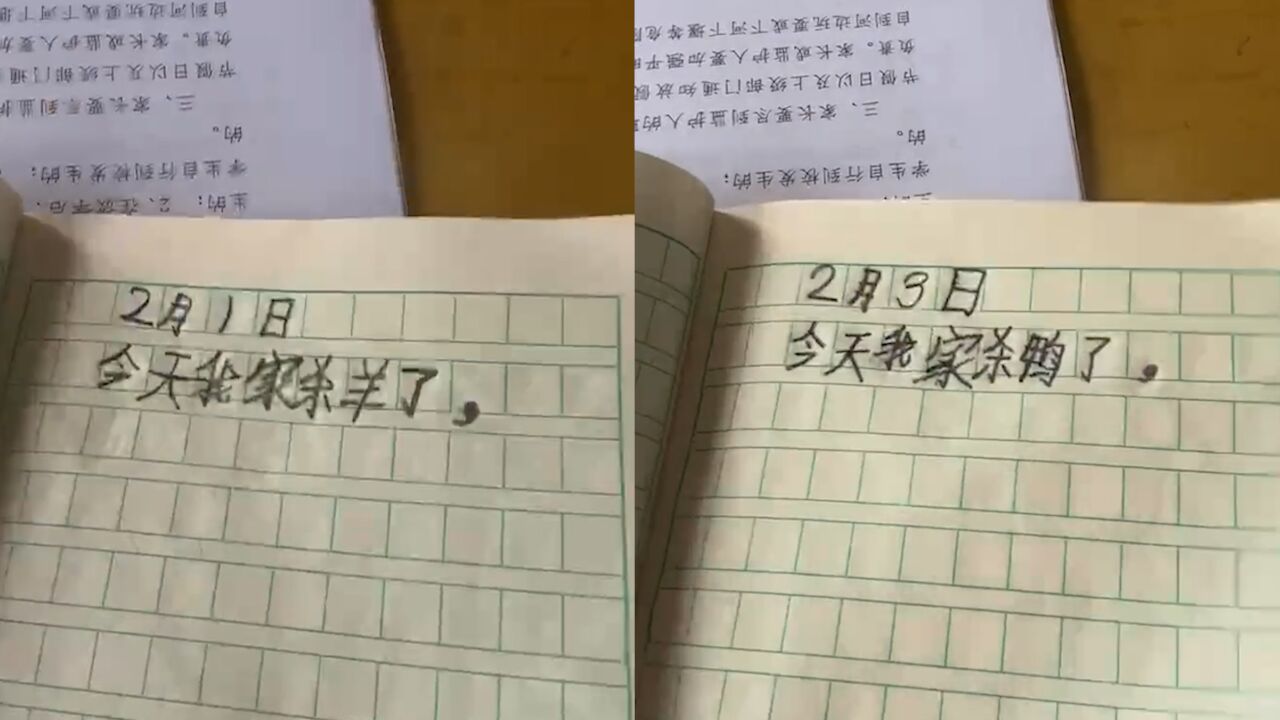 生的；2、在放学后，
学生自行到校发生的；
的。
三、家长要尽到监护
节假日以及上级部门通
负责。家长或监护人要加
自到河边玩耍或下河下
2月1日
今天我家杀羊了，
学生自行到校发生的；
的。
三、家长要尽到监护人的
节假日以及上级部门通知放假
负责。家长或监护人要加强平
自到河边玩耍或下河下堰等危
2月3日
今天我家杀鸭了，